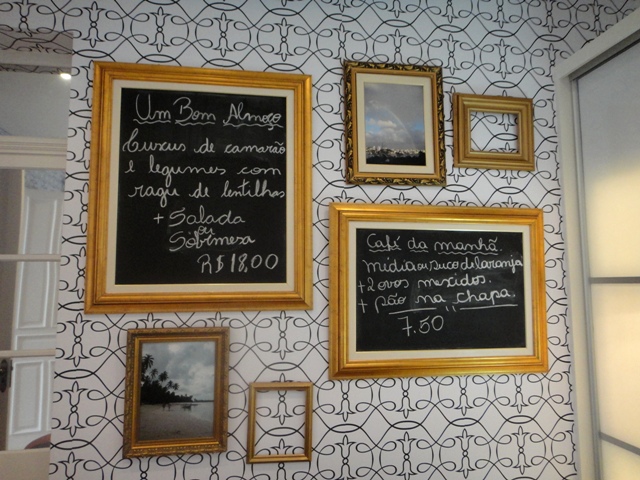 Um Bom Almoço
Cuzcus de camarão
e legumes com
ragu de lentilhas
+ Salada
ou
Sobrimesa
R$ 18,00
Café da manhã
média ou suco di laranja
+ 2 ovos mexidos.
+ pão na chapa.
7.50